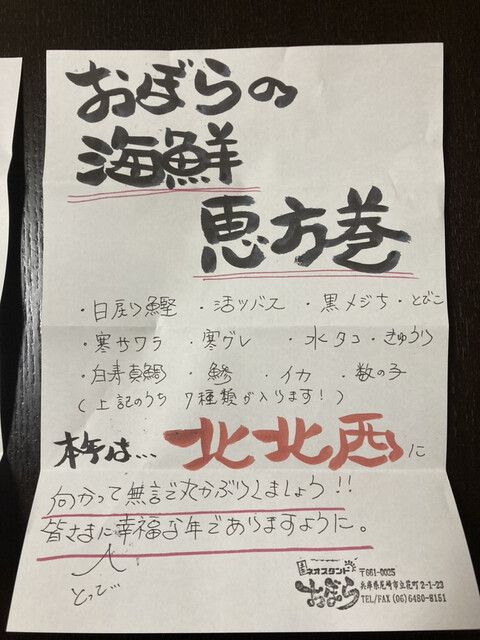 おぼらの
海鮮
恵方巻
・日戻り鰹 ・活ツバス ・黒メジち ・とびこ
・寒サワラ ・寒グレ ・水タコ ・きゅうり
・白寿真鯛 ・鯵 ・イカ ・数の子
(上記のうち 7種類が入ります!)
本年は… 北北西に
向かって無言で丸かぶりしましょう!!
皆さまに幸福な年でありますように。
とって
ネオスタンド
おぼら
〒661-0025
兵庫県尼崎市立花町2-1-23
TEL/FAX (06)6480-8151